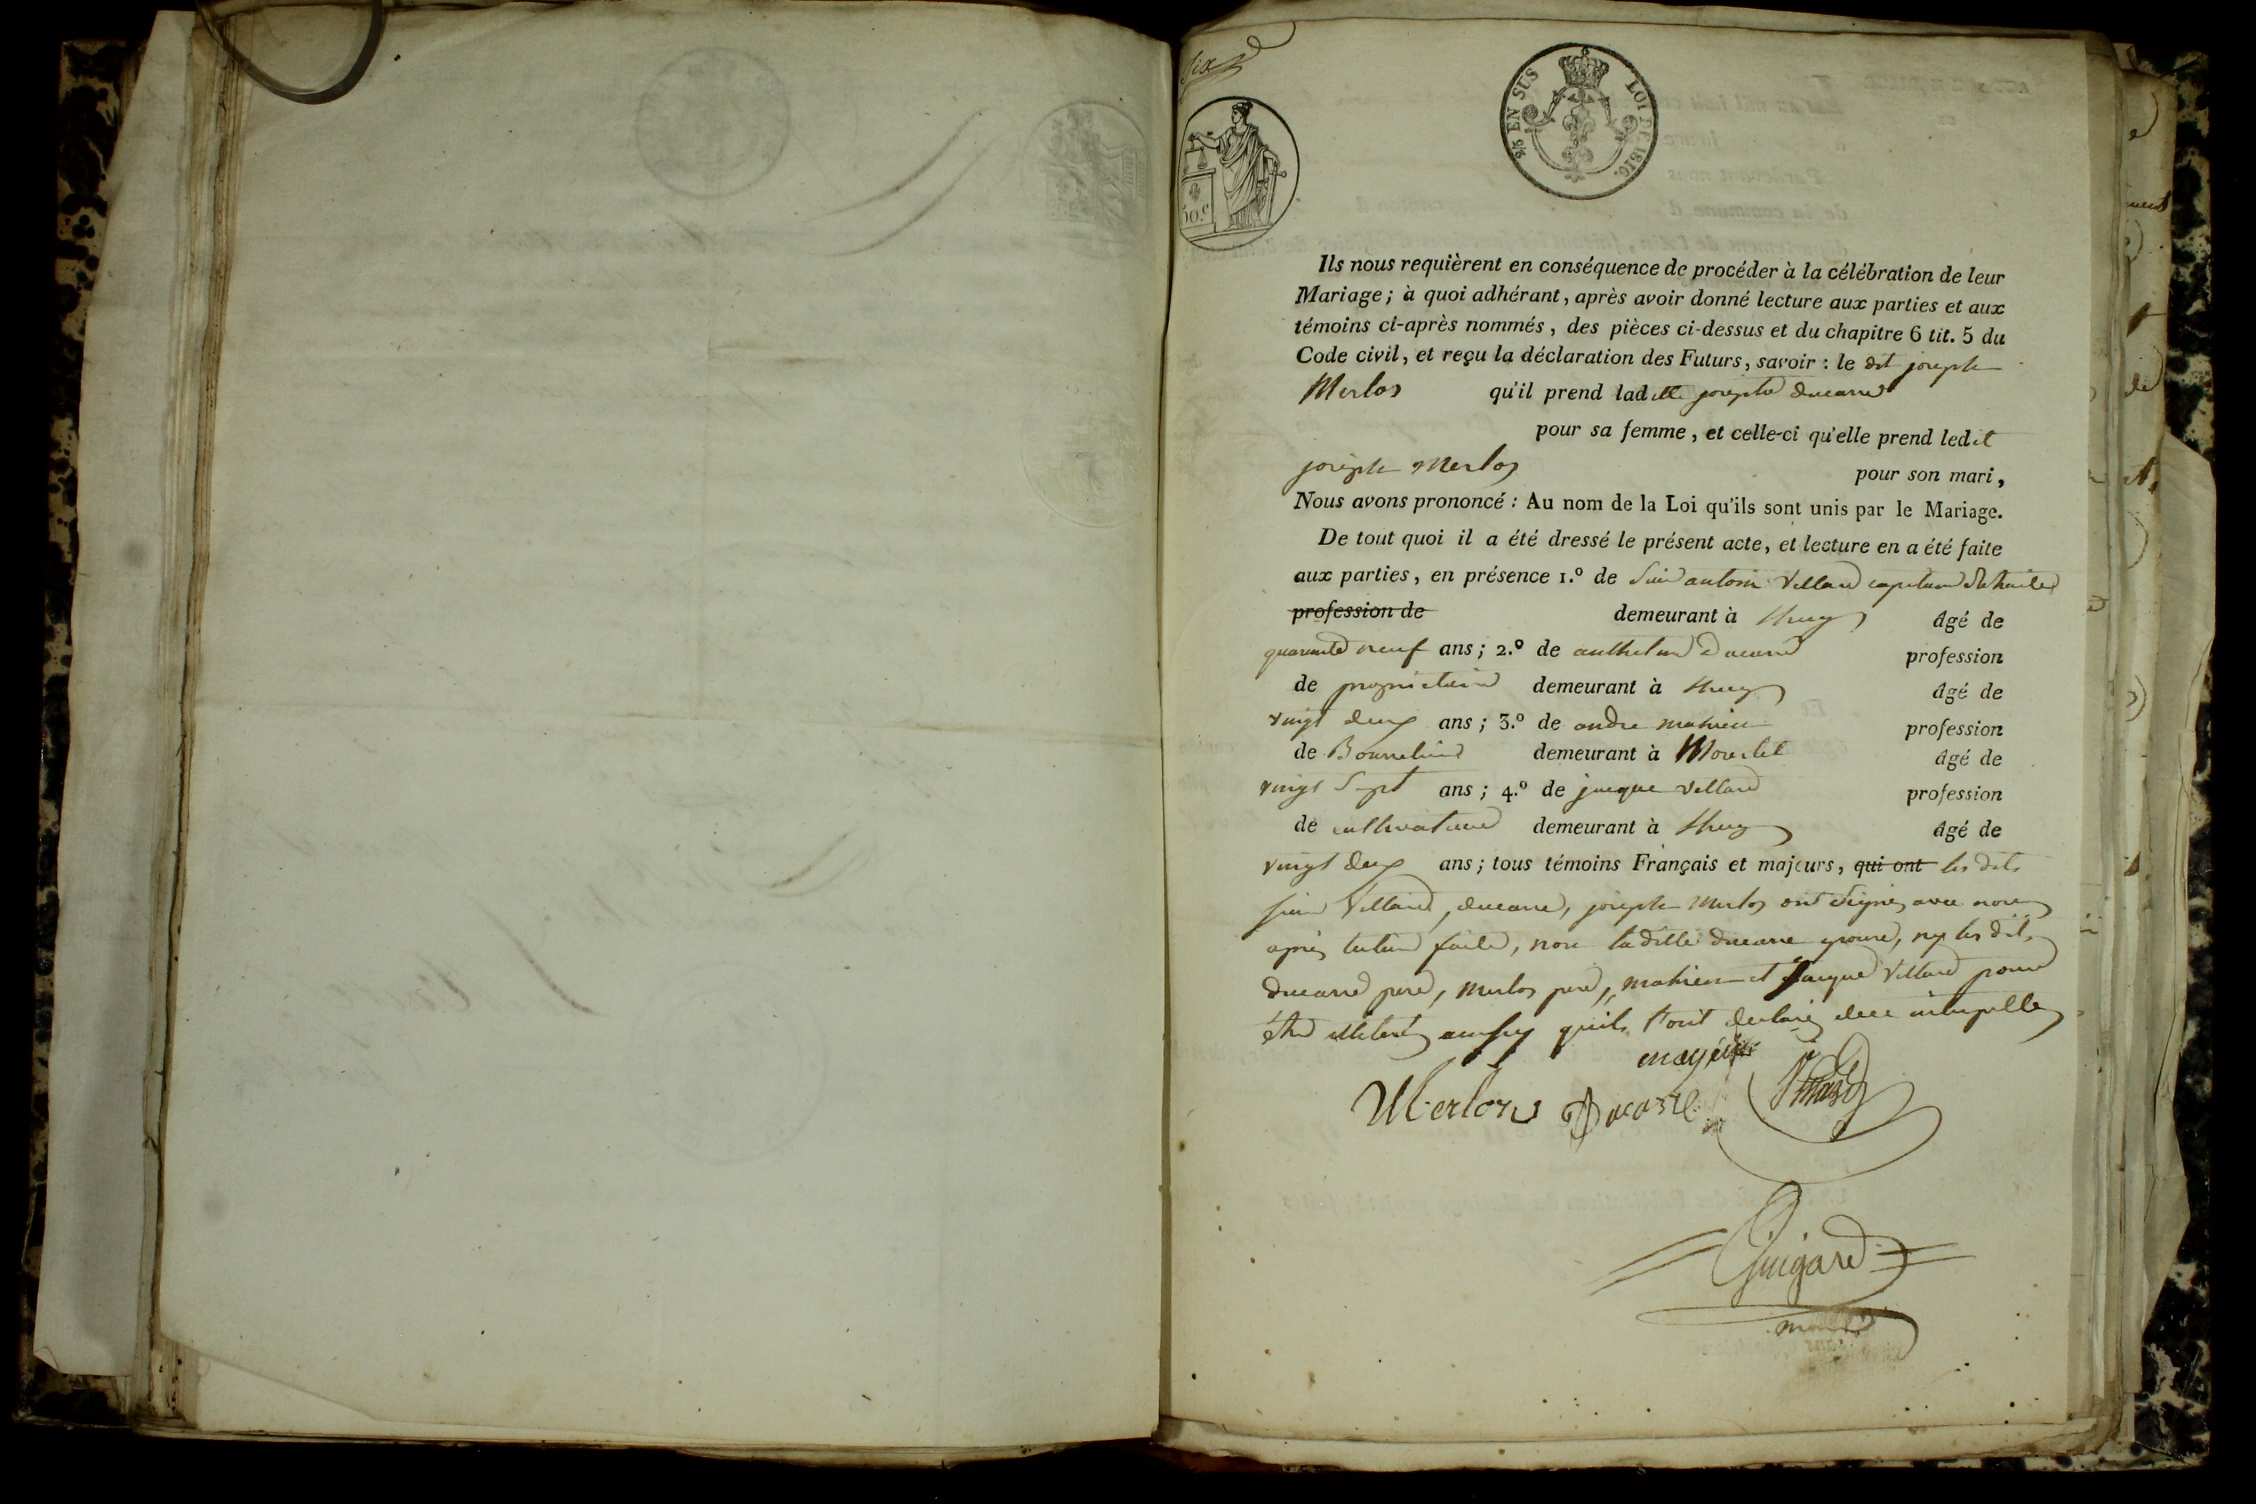 Six
2/5 EN SUS LOI DE 1816.
50.c
Ils nous requièrent en conséquence de procéder à la célébration de leur
Mariage; à quoi adhérant, après avoir donné lecture aux parties et aux
témoins ci-après nommés, des pièces ci-dessus et du chapitre 6 tit. 5 du
Code civil, et reçu la déclaration des Futurs, savoir : le dit joseph
Merlos qu'il prend ladette josephe ducarre
pour sa femme, et celle-ci qu'elle prend ledit
joseph Merlos pour son mari,
Nous avons prononcé : Au nom de la Loi qu'ils sont unis par le Mariage.
De tout quoi il a été dressé le présent acte, et lecture en a été faite
aux parties, en présence 1.º de Sieur antoine Villard capitaine
profession de demeurant à âgé de
quarante neuf ans; 2.º de anthelme Ducarre profession
de propriétaire demeurant à âgé de
vingt deux ans; 3.º de andre mathieu profession
de Bourrelier demeurant à Morestel âgé de
vingt Sept ans; 4.º de jacque Villard profession
de cultivateur demeurant à âgé de
vingt deux ans; tous témoins Français et majeurs, qui ont les dits
sieur Villard, ducarre, joseph Merlos ont Signés avec nous
après lecture faite, non ladette ducarre epouse, ny les dits
ducarre pere, Merlos pere, mathieu et Jacque Villard pour
être illiterés ainsy quils l'ont declarés de ce interpellés
Merlos Ducarre
Guigard
maire